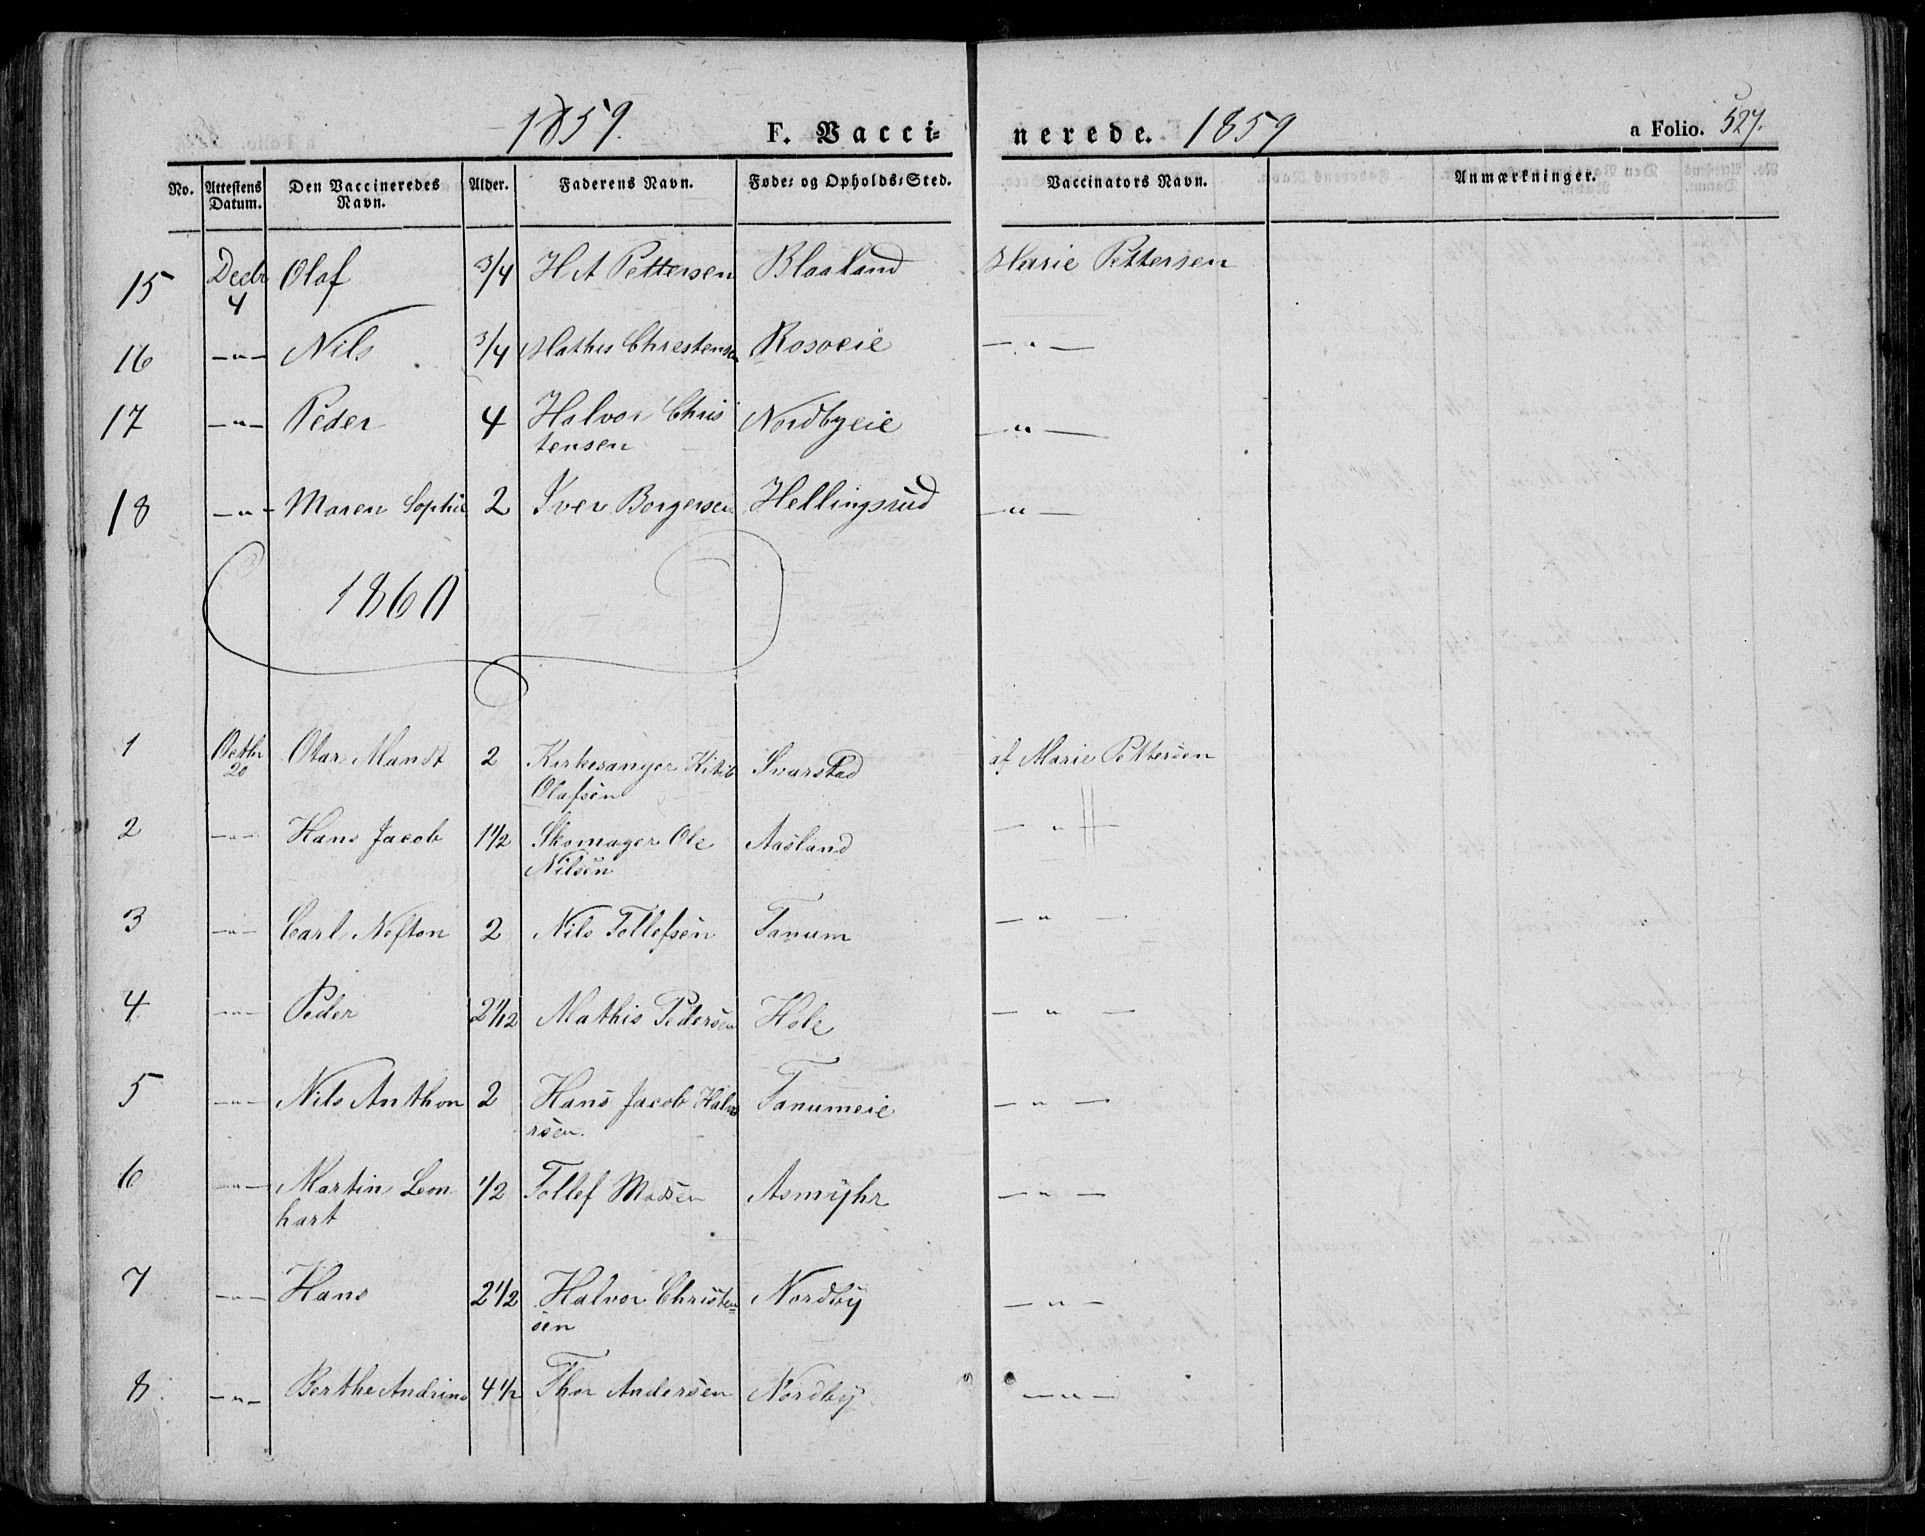 1859. F. Vacci= nerede. 1859 a Folio. 527.
No. Attestens Datum. Den Vaccineredes Navn. Alder. Faderens Navn. Føde= og Opholds=Sted. Vaccinators Navn. Anmærkninger.
15 Decbr 4 Olaf 3/4 H A Pettersen Blaaland Marie Pettersen
16 —"— Nils 3/4 Mathis Christensen Rosoeie —"—
17 —"— Peder 4 Halvor Chris
tensen Nordbyeie —"—
18 —"— Maren Sophie 2 Iver Borgersen Hellingsrud —"—
1860
1 Octbr 20 Olar Mandt 2 Kirkesanger
Olafsen Svarstad af Marie Pettersen
2 —"— Hans Jacob 1 1/2 Skomager Ole
Nilsen Aasland —"—
3 —"— Carl Nefton 2 Nils Tollefsen Tanum —"—
4 —"— Peder 2 1/12 Mathis Pedersen Hole —"—
5 —"— Nils Anthon 2 Hans Jacob Halvo
rsen. Tanumeie —"—
6 —"— Martin Leon
hart 1/2 Tollef Madsen Asmyhr —"—
7 —"— Hans 2 1/2 Halvor Christen=
sen Nordby —"—
8 —"— Berthe Andrine 4 1/2 Thor Andersen Nordby —"—